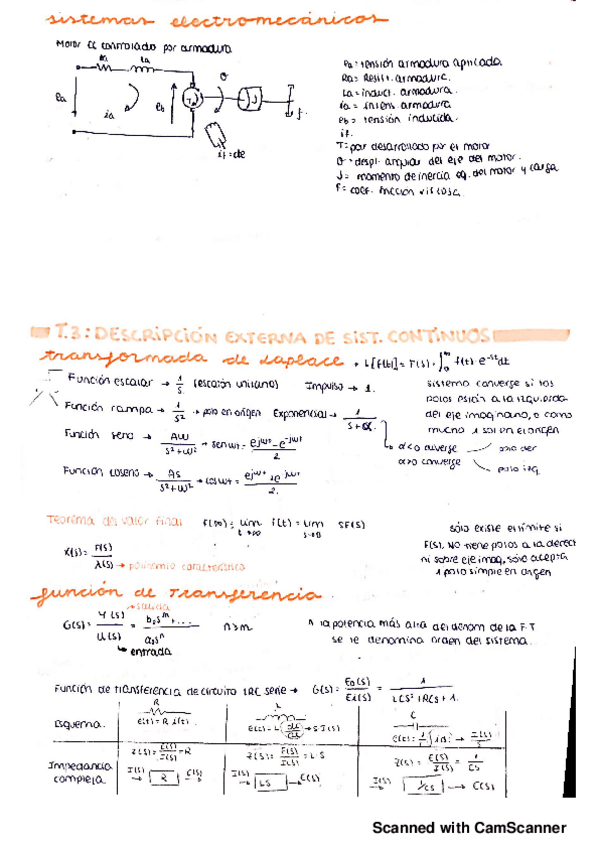 sistemas electromecánicos
Motor CC controlado por armadura
Ra La
ea ia eb T θ J f
if=cte
ea=tensión armadura aplicada
Ra= Resist. armadura.
La=induct. armadura.
ia = intens armadura
eb= tensión inducida.
if.
T=par desarrollado por el motor
θ=despl. angular del eje del motor.
J= momento de inercia eq. del motor y carga
f= coef. fricción viscosa.
T.3: DESCRIPCIÓN EXTERNA DE SIST. CONTINUOS
transformada de laplace → L[f(t)] = F(s) = ∫₀^∞ f(t) e^-st dt
Función escalar → 1/s (escalón unitario) Impulso → 1.
Función rampa → 1/s² → polo en origen Exponencial → 1/s+α
Función seno → Aω/s²+ω² → senωt = e^jωt - e^-jωt/2
Función coseno → As/s²+ω² → cosωt = e^jωt + e^-jωt/2.
sistema converge si los
polos están a la izquierda
del eje imaginario, o como
mucho 1 solo en el origen
α<0 diverge polo der
α>0 converge polo izq
Teorema del valor final f(∞) = lim t→∞ f(t) = lim s→0 SF(s)
X(s) = F(s)/λ(s) → polinomio característico
sólo existe el límite si
F(s). NO tiene polos a la derecha
ni sobre eje imag, sólo acepta
1 polo simple en origen
función de transferencia
G(s) = Y(s)/U(s) = b₀s^m+.../a₀s^n n≥m
salida
entrada
n la potencia más alta del denom de la F.T
se le denomina orden del sistema
Función de transferencia de circuito LRC serie → G(s) = Eo(s)/Ei(s) = 1/LCS²+RCS+1.
R L C
Esquema. e(t) = R i(t) e(t) = L(di/dt) → S·I(S) e(t) = 1/C ∫ i dt → I(S)/S
Impedancia Z(S) = E(S)/I(S) = R Z(S) = E(S)/I(S) = L·S Z(S) = E(S)/I(S) = 1/CS
compleja I(S) → R → E(S) I(S) → LS → E(S) I(S) → 1/CS → E(S)
Scanned with CamScanner